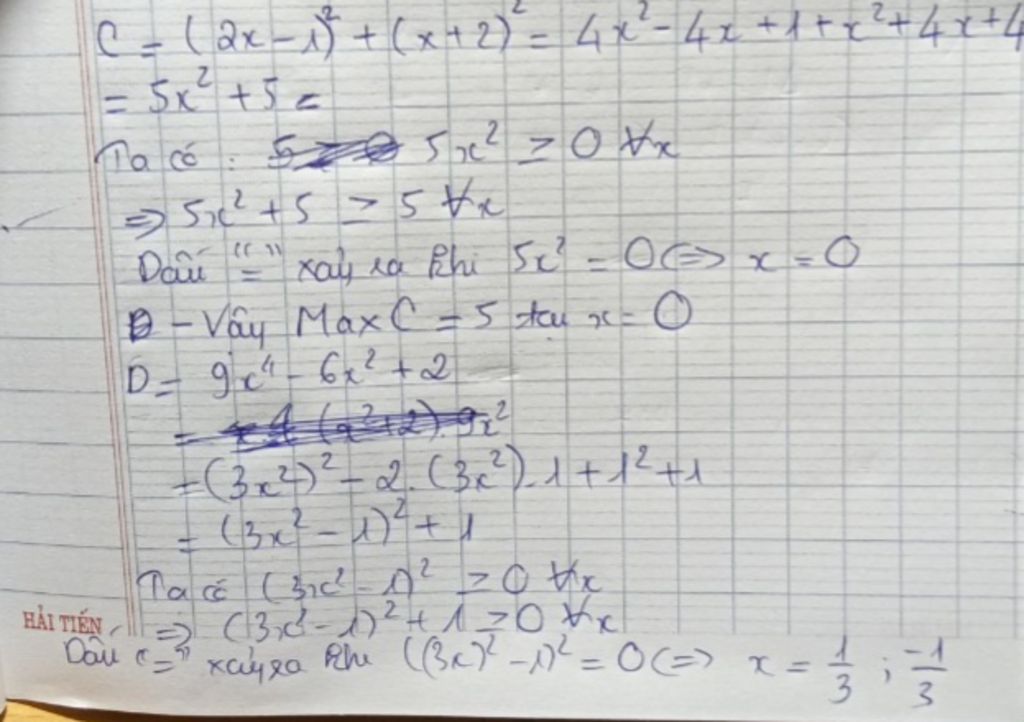 C = (2x-1)² + (x+2)² = 4x² - 4x + 1 + x² + 4x + 4
= 5x² + 5 =
Ta có : 5x² ≥ 0 ∀x
=> 5x² + 5 ≥ 5 ∀x
Dấu "=" xảy ra khi 5x² = 0 <=> x = 0
- Vậy Max C = 5 tại x = 0
D = 9x⁴ - 6x² + 2
=
= (3x²)² - 2. (3x²) . 1 + 1² + 1
= (3x² - 1)² + 1
Ta có (3x² - 1)² ≥ 0 ∀x
=> (3x² - 1)² + 1 ≥ 0 ∀x
HẢI TIẾN
Dấu "=" xảy ra khi ((3x)² - 1)² = 0 <=> x = 1/3 ; -1/3